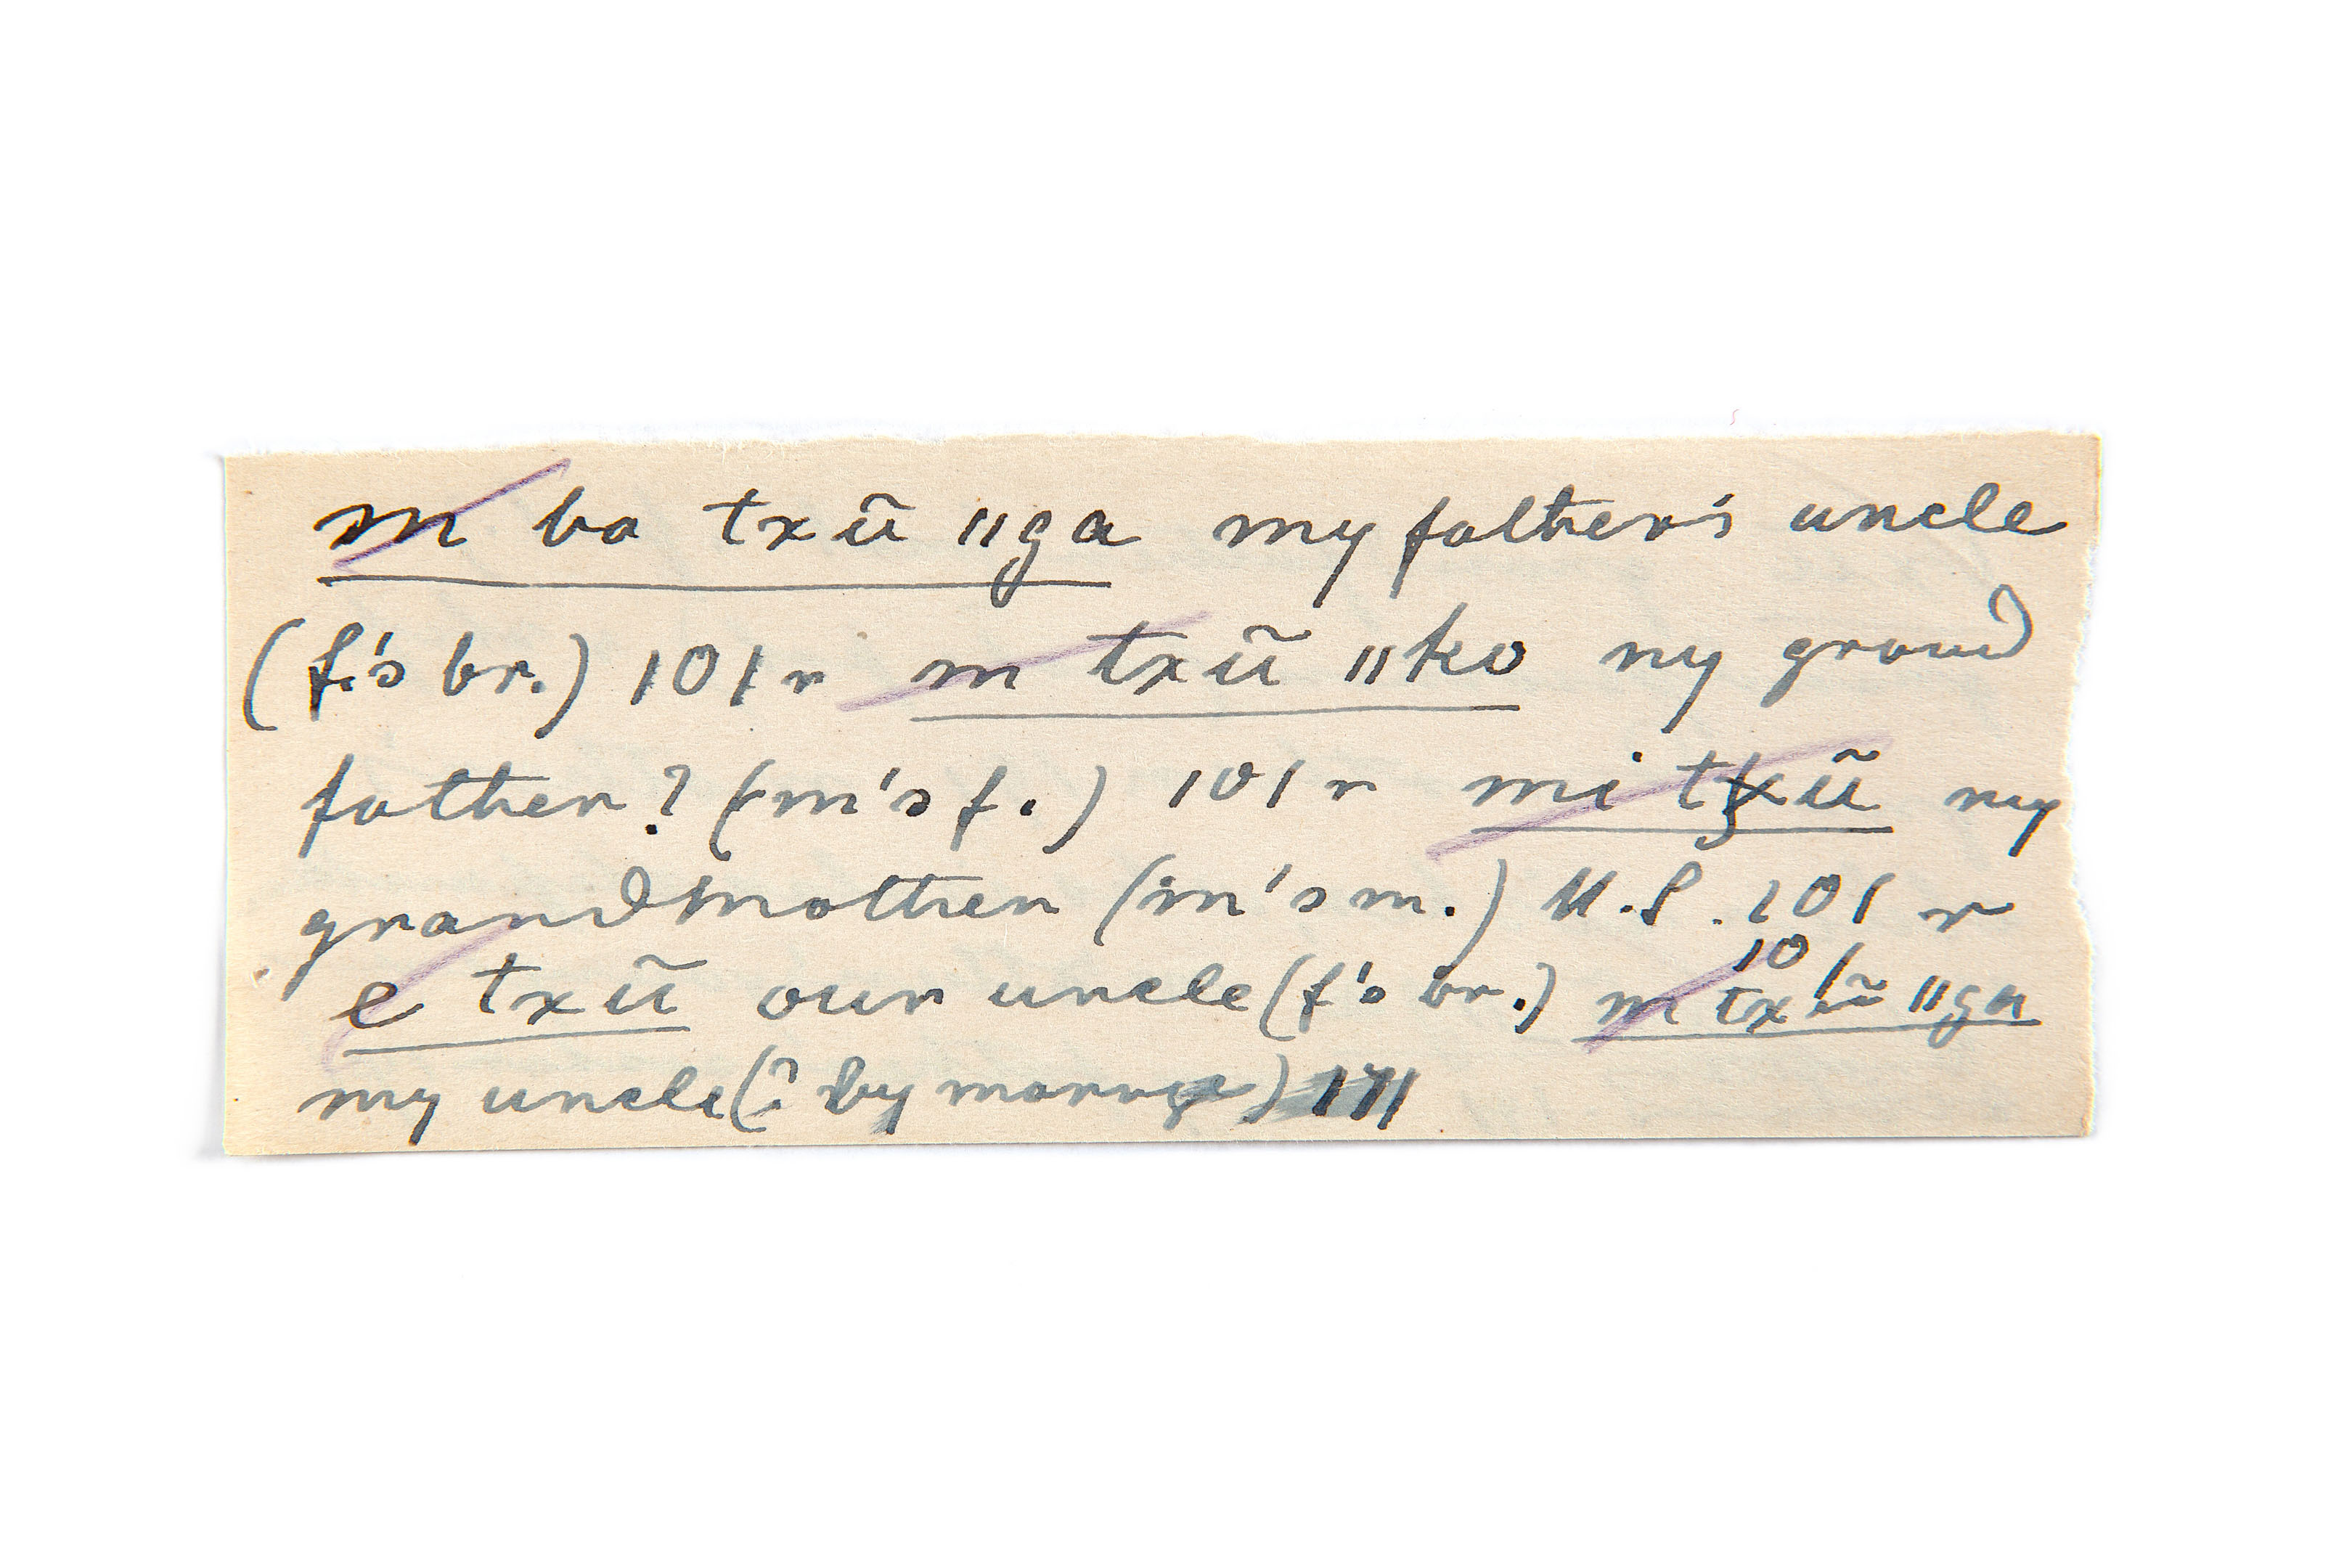 m ba txũ ǁga my father's uncle
(f.'s br.) 101 r m txũ ǁko my grand
father? (m's f.) 101 r mi txũ my
grandmother (m's m.) 101 r
e txũ our uncle (f's br.) 101 m txũ ǁga
my uncle (? by marriage)